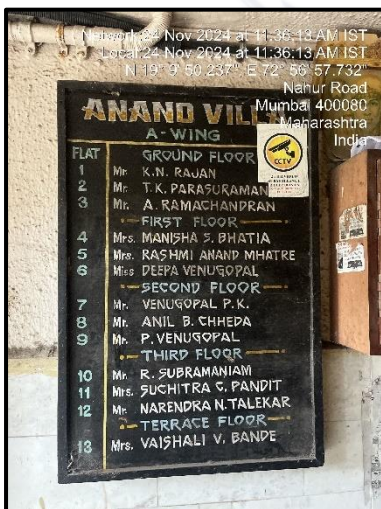 Network: 24 Nov 2024 at 11:36:13 AM IST
Local: 24 Nov 2024 at 11:36:13 AM IST
N 19° 9' 50.237", E 72° 56' 57.732"
Nahur Road
Mumbai 400080
Maharashtra
India
ANAND VILLA
A-WING
FLAT GROUND FLOOR
1 Mr. K.N. RAJAN
2 Mr. T.K. PARASURAMAN
3 Mr. A. RAMACHANDRAN
FIRST FLOOR
4 Mrs. MANISHA S. BHATIA
5 Mrs. RASHMI ANAND MHATRE
6 Miss DEEPA VENUGOPAL
SECOND FLOOR
7 Mr. VENUGOPAL P.K.
8 Mr. ANIL B. CHHEDA
9 Mr. P. VENUGOPAL
THIRD FLOOR
10 Mr. R. SUBRAMANIAM
11 Mrs. SUCHITRA C. PANDIT
12 Mr. NARENDRA N. TALEKAR
TERRACE FLOOR
13 Mrs. VAISHALI V. BANDE
CCTV